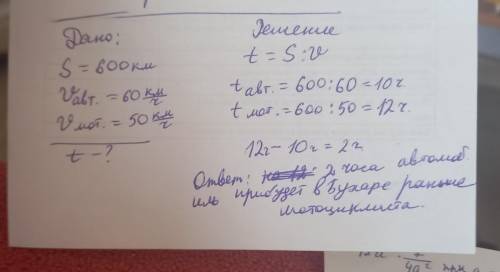 Дано:
S = 600 км
Vавт. = 60 км/ч
Vмот. = 50 км/ч
t - ?
Решение
t = S : V
tавт. = 600 : 60 = 10 ч.
tмот. = 600 : 50 = 12 ч.
12ч - 10ч = 2ч
Ответ: 2 часа автомоб
иль прибудет в Бухаре раньше
мотоциклиста.